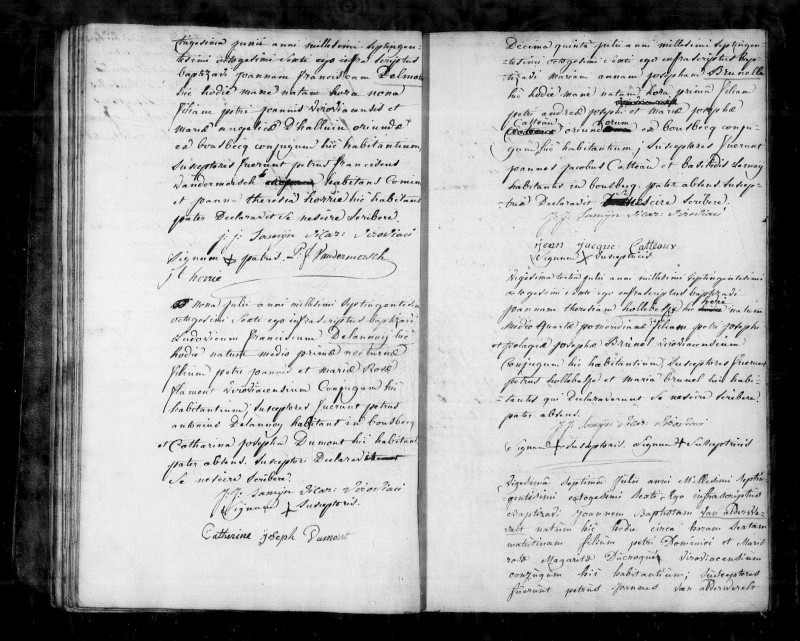 trigesima junii anni millesimi septingen-
tesimi octogesimi sexti ego infrascriptus
baptizavi joannam franciscam Delmo
hic hodie mane natam hora nona
filiam petri joannis virovianensis et
mariæ angelicæ Dhalluin oriundæ
ex bousbecq conjugum hic habitantium,
susceptores fuerunt petrus franciscus
Vandermersch habitans Comin
et joanna theresia horrie hic habitans
pater Declaravit se nescire scribere.
j. j. Samijn vicar. viroviaci
signum + patris. P. J. Vandermersch
j t horrie
nona julii anni millesimi septingentesimi
octogesimi sexti ego infrascriptus baptizavi
Ludovicum franciscum Delannoy hic
hodie natum medio primæ nocturnæ
filium petri joannis et mariæ Rosæ
flamont viroviacensium Conjugum hic
habitantium, susceptores fuerunt petrus
antonius Delannoy habitans in bousbecq
et Catharina josepha Dumont hic habitans
pater absens. susceptor Declaravit
se nescire scribere.
j. j. Samijn vicar. viroviaci
signum + susceptoris.
Catherine joseph Dumont
Decima quinta julii anni millesimi septingen-
tesimi octogesimi sexti ego infrascriptus bap-
tizavi mariam annam josepham Brunelle
hic hodie mane natam hora prima filiam
petri andreæ josephi et mariæ josephæ
Catteau oriundorum ex bousbecq conju-
gum hic habitantium; susceptores fuerunt
joannes jacobus Catteau et
habitantes in bousbecq. pater absens suscep-
trix Declaravit se nescire scribere.
j. j. Samijn vicar. viroviaci
jean jacque Catteaux
signum + susceptricis
vigesima tertia julii anni millesimi septingentesimi
octogesimi sexti ego infrascriptus baptizavi
joannam theresiam hollebeke hic heri natam
medio quartæ pomeridianæ filiam petri josephi
et pelagiæ josephæ Brunel viroviacensium
Conjugum hic habitantium, susceptores fuerunt
petrus hollebeke et maria brunel hic habi-
tantes qui Declaraverunt se nescire scribere.
pater absens.
j. j. Samijn vicar. viroviaci
signum + susceptoris. signum + susceptricis
vigesima septima julii anni millesimi septin-
gentesimi octogesimi sexti, Ego infrascriptus
baptizavi joannem baptistam van alderwe-
relt natum hic hodie circa horam sextam
matutinam filium petri Dominici et mariæ
rosæ Ducroquet viroviacensium
conjugum hic habitantium; susceptores
fuerunt petrus joannes van alderwerelt